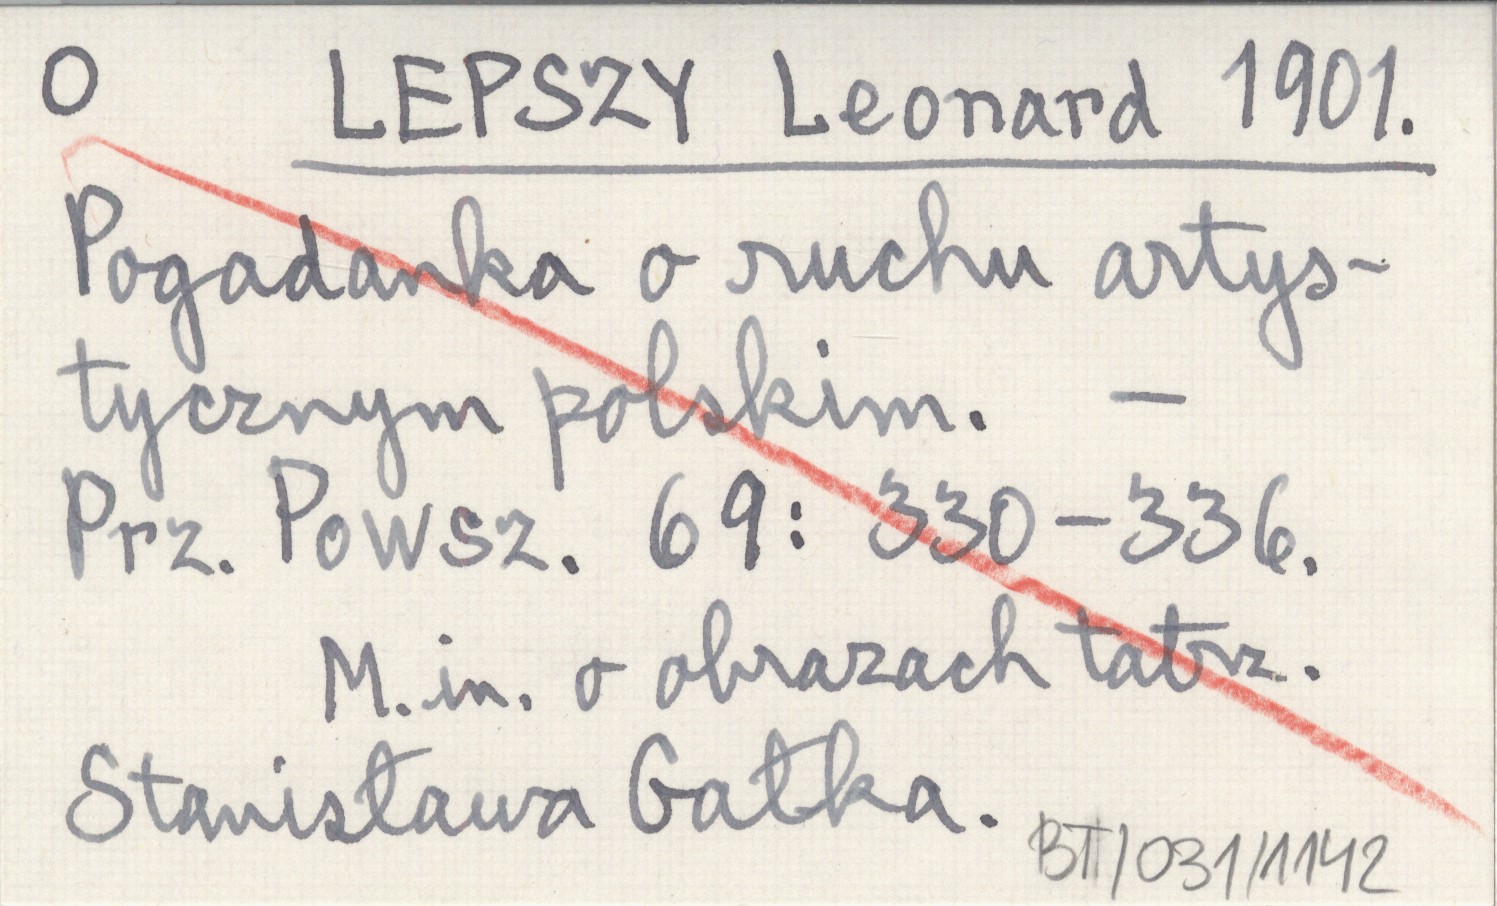 O LEPSZY Leonard 1901.
Pogadanka o ruchu artys-
tycznym polskim. —
Prz. Powsz. 69: 330-336.
M. in. o obrazach tatrz.
Stanisława Gałka.
BTT/031/1142